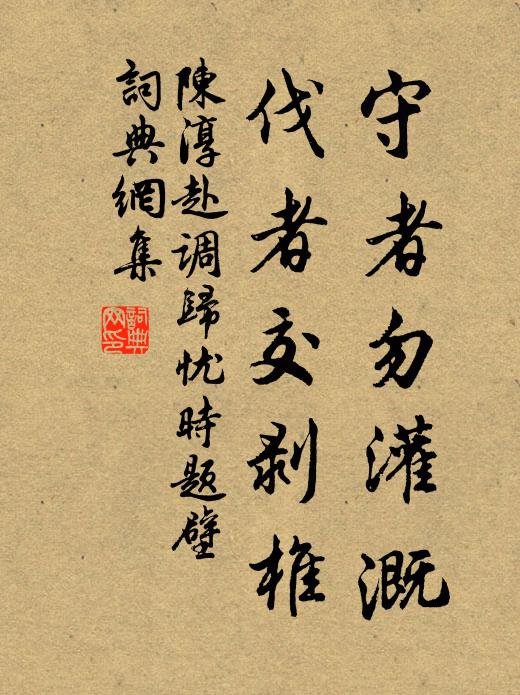 守者勿灌溉
伐者交剥椎
陳淳赴调歸忧時题壁
詞典網集
詞典網印